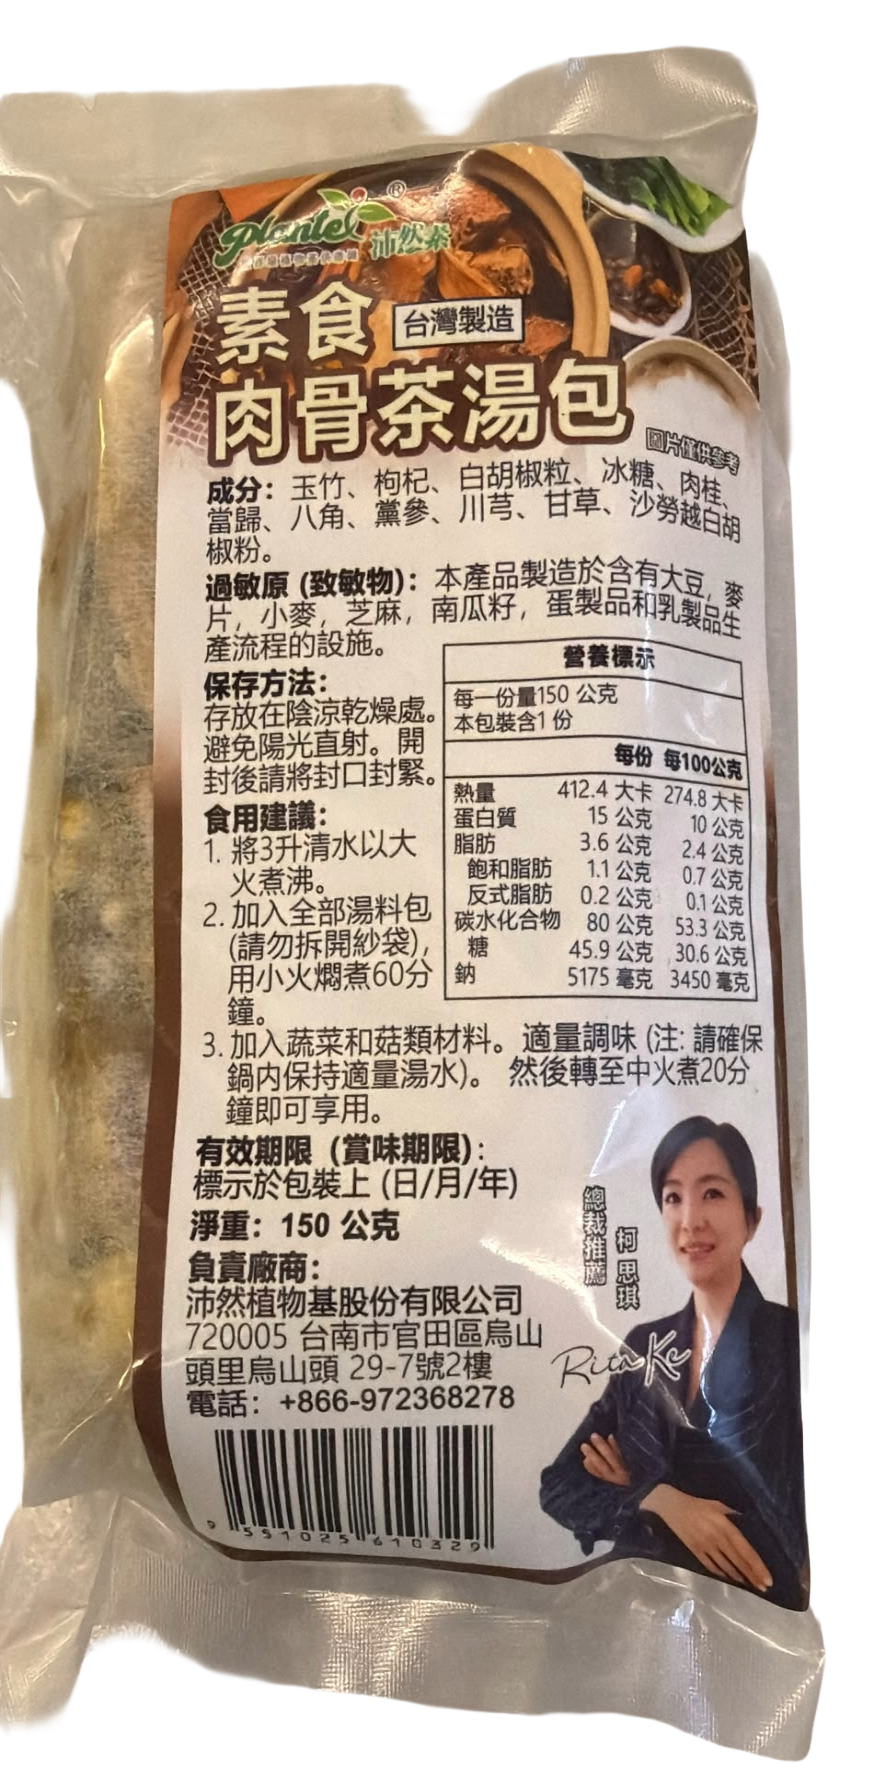 Plantel®
沛然素
素食
台灣製造
肉骨茶湯包
圖片僅供參考
成分：玉竹、枸杞、白胡椒粒、冰糖、肉桂、
當歸、八角、黨參、川芎、甘草、沙勞越白胡
椒粉。
過敏原 (致敏物)：本產品製造於含有大豆，麥
片，小麥，芝麻，南瓜籽，蛋製品和乳製品生
產流程的設施。
保存方法：
存放在陰涼乾燥處。
避免陽光直射。開
封後請將封口封緊。
食用建議：
1. 將3升清水以大
火煮沸。
2. 加入全部湯料包
(請勿拆開紗袋)，
用小火燜煮60分
鐘。
3. 加入蔬菜和菇類材料。適量調味 (注: 請確保
鍋内保持適量湯水)。 然後轉至中火煮20分
鐘即可享用。
營養標示
每一份量150 公克
本包裝含1 份
每份 每100公克
熱量 412.4 大卡 274.8 大卡
蛋白質 15 公克 10 公克
脂肪 3.6 公克 2.4 公克
飽和脂肪 1.1 公克 0.7 公克
反式脂肪 0.2 公克 0.1 公克
碳水化合物 80 公克 53.3 公克
糖 45.9 公克 30.6 公克
鈉 5175 毫克 3450 毫克
有效期限（賞味期限)：
標示於包裝上 (日/月/年)
淨重：150 公克
負責廠商：
沛然植物基股份有限公司
720005 台南市官田區烏山
頭里烏山頭 29-7號2樓
電話：+866-972368278
總裁推薦
柯思琪
Rita Ke
9 551025 610329